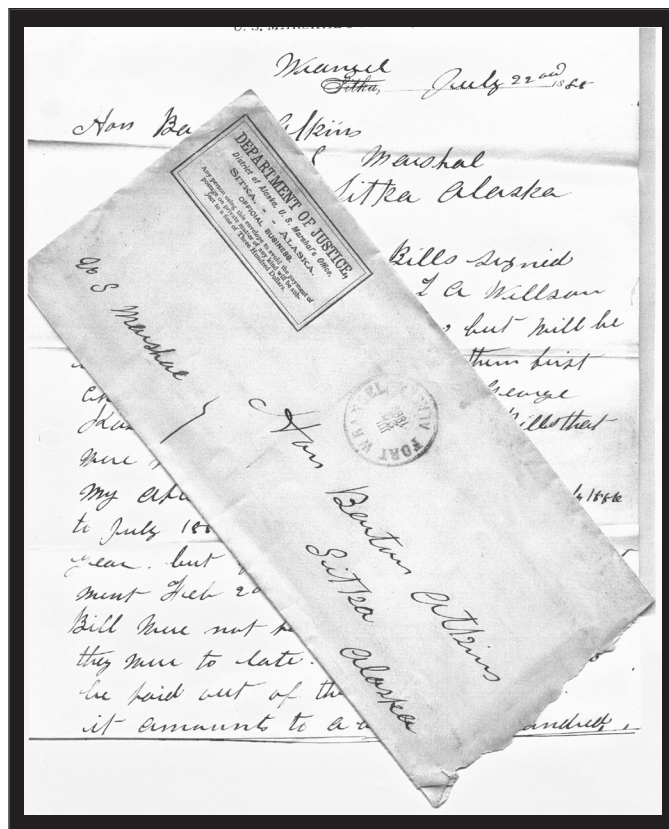 U. S. MARSHAL
Wrangel
Sitka, July 22nd 1886
Hon Ba Atkins
Marshal
Sitka Alaska
Bills signed
A Willson
but will be
them first
George
Bills that
were
my
to July 188
year. but
ment Feb 20
Bill were not
they were to late.
be paid out of the
it amounts to a hundred.
DEPARTMENT OF JUSTICE,
District of Alaska, U. S. Marshal's Office,
SITKA, - - ALASKA.
OFFICIAL BUSINESS.
Any person using this envelope to avoid the payment of
postage on private matter of any kind will be sub-
ject to a fine of Three Hundred Dollars.
U S Marshal
FORT WRANGEL
Hon Barton Atkins
Sitka
Alaska